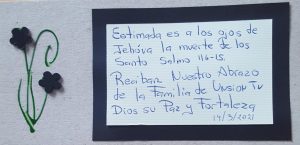 Estimada es a los ojos de
Jehóva la muerte de los
Santo Salmo 116-15.
Reciban Nuestro Abrazo
de la Familia de Unsion Tv
Dios su Paz y Fortaleza
14/3/2021